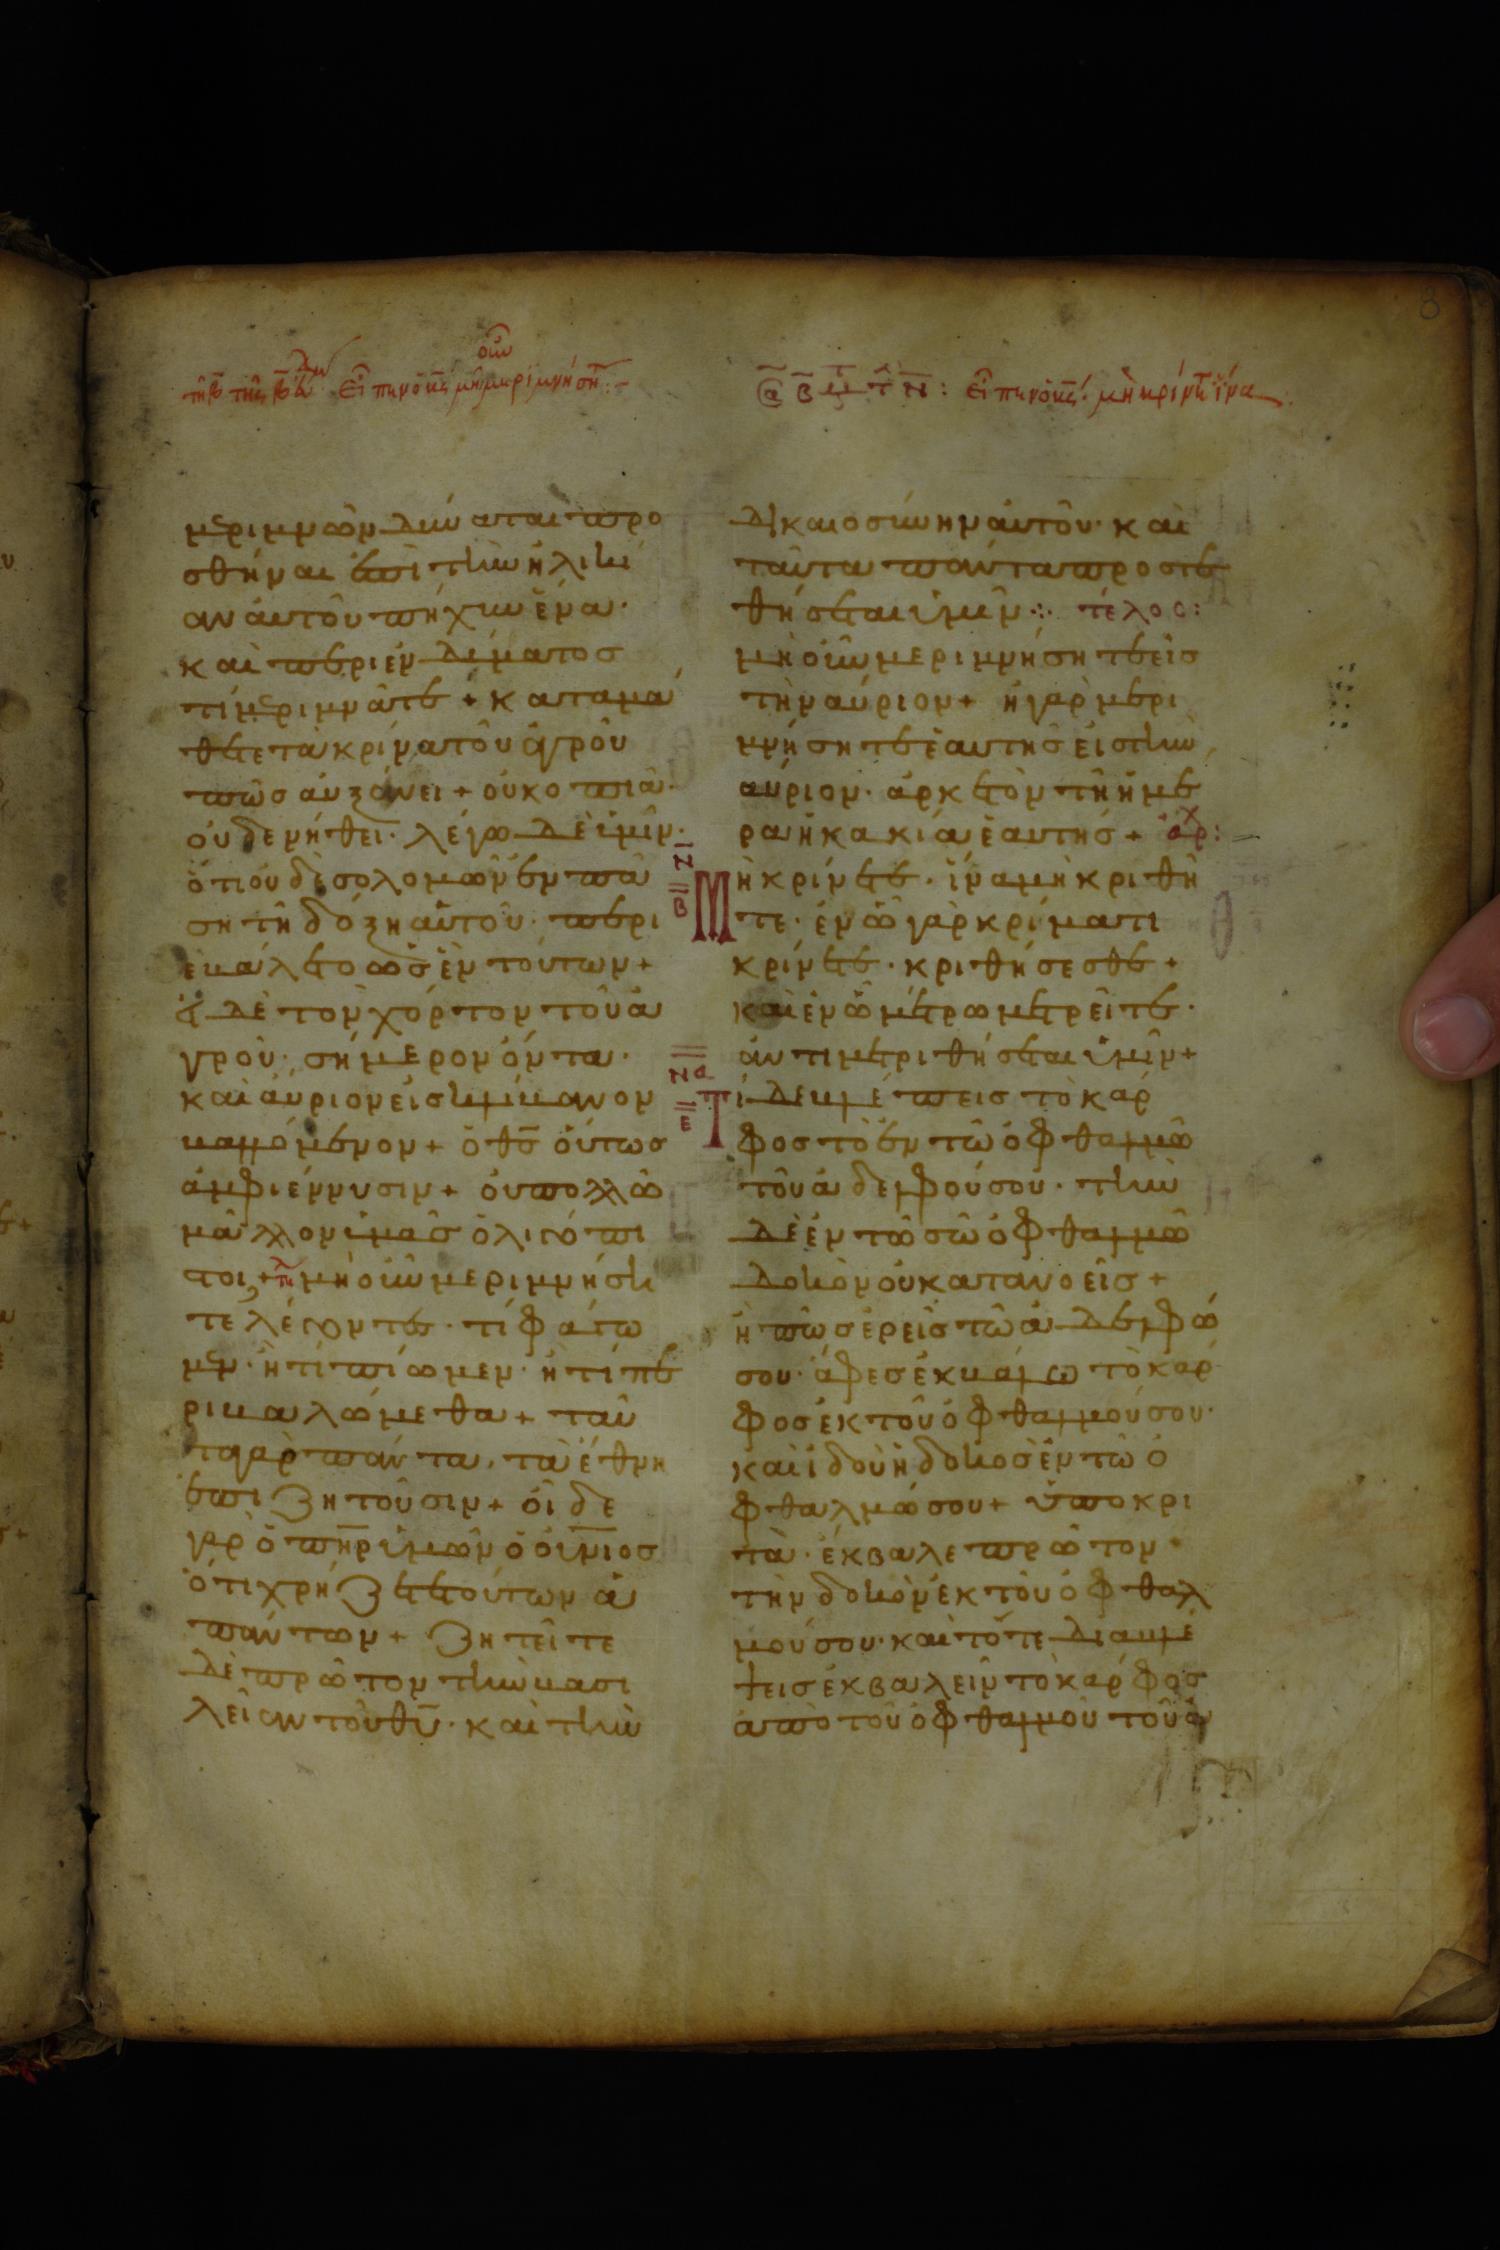 μεριμνῶν δύναται προ
σθῆναι ἐπὶ τὴν ἡλικί
αν αὐτοῦ πῆχυν ἕνα·
καὶ περὶ ἐνδύματος
τί μεριμνᾶτε + καταμά
θετε τὰ κρίνα τοῦ ἀγροῦ
πῶς αὐξάνει + οὐ κοπιᾶ·
οὐδε νήθει· λέγω δὲ ὑμῖν·
ὅτι οὐδὲ σολομὼν ἐν πά
ση τῆ δόξη αὐτοῦ· περι
εβάλετο ὡς ἓν τούτων +
εἰ δὲ τὸν χόρτον τοῦ ἀ
γροῦ· σήμερον ὄντα·
καὶ αὔριον εἰς κλίβανον
βαλλόμενον + ὁ θς̅ οὕτως
ἀμφιέννυσιν + οὐ πολλῶ
μᾶλλον ὑμᾶς ὀλιγόπι
στοι + μὴ οὖν μεριμνήση
τε λέγοντες· τί φάγω
μεν· ἢ τί πίωμεν· ἢ τί πε
ριβαλώμεθα + ταῦ
τα γὰρ πάντα, τὰ ἔθνη
ἐπιζητοῦσιν + οἶδε
γὰρ ὁ πη̅ρ ὑμῶν ὁ οὐ̅νιος
ὅτι χρήζετε τούτων ἁ
πάντων + ζητεῖτε
δὲ πρῶτον τὴν βασι
λείαν τοῦ θυ̅· καὶ τὴν
δικαιοσύνην αὐτοῦ· καὶ
ταῦτα πάντα προστε
θήσεται ὑμῖν ⁘ τέλος:
μὴ οὖν μεριμνήσητε εἰς
τὴν αὔριον + ἡ γὰρ μερι
μνήσητε ἑαυτῆς εἰς τὴν
αὔριον· ἀρκετὸν τῆ ἡμέ
ρα ἡ κακία ἑαυτῆς + ἀρχ:
Μὴ κρίνετε· ἵνα μὴ κριθῆ
τε· ἐν ὧ γὰρ κρίματι
κρίνετε· κριθήσεσθε +
καὶ ἐν ὧ μέτρω μετρεῖτε·
ἀντιμετρηθήσεται ὑμῖν +
Τί δε βλέπεις τὸ κάρ
φος τὸ ἐν τῶ ὀφθαλμῶ
τοῦ ἀδελφοῦ σου· τὴν
δὲ ἐν τῶ σῶ ὀφθαλμῶ
δοκὸν οὐ κατανοεῖς +
ἢ πῶς ἐρεῖς τῶ ἀδελφῶ
σου· ἄφες ἐκβάλω τὸ κάρ
φος ἐκ τοῦ ὀφθαλμοῦ σου·
καὶ ἰδοὺ ἡ δοκὸς ἐν τῶ ὀ
φθαλμῶ σου + ὑποκρι
τὰ· ἔκβαλε πρῶτον
τὴν δοκὸν ἐκ τοῦ ὀφθαλ
μοῦ σου· καὶ τότε διαβλέ
ψεις ἐκβαλεῖν τὸ κάρφος
ἀπὸ τοῦ ὀφθαλμοῦ τοῦ ἀ